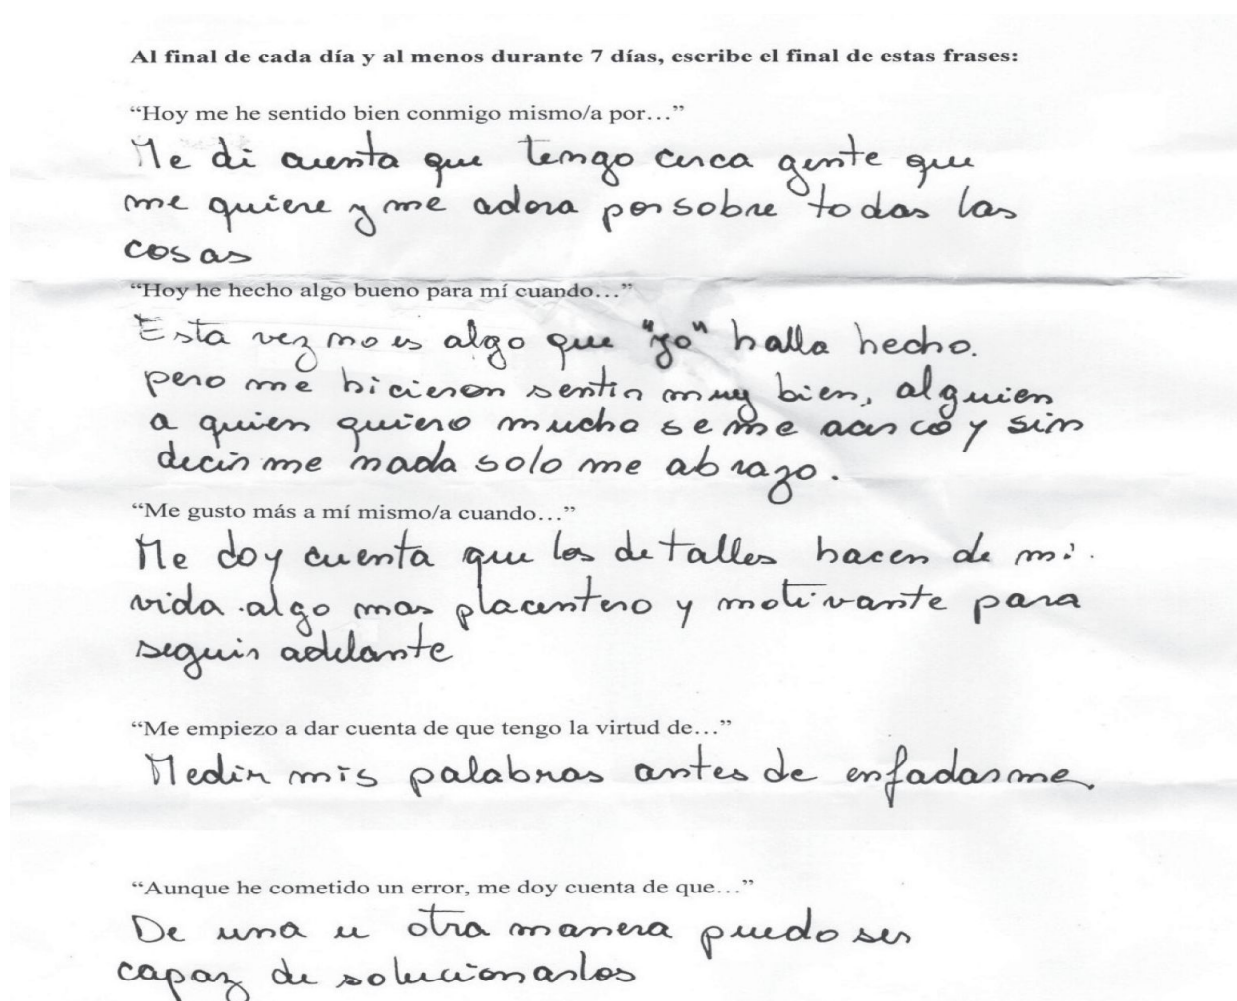 Al final de cada día y al menos durante 7 días, escribe el final de estas frases:
“Hoy me he sentido bien conmigo mismo/a por…”
Me di cuenta que tengo cerca gente que
me quiere y me adora por sobre todas las
cosas
“Hoy he hecho algo bueno para mí cuando…”
Esta vez no es algo que "yo" halla hecho.
pero me hicieron sentir muy bien, alguien
a quien quiero mucho se me acerco y sin
decirme nada solo me abrazo.
“Me gusto más a mí mismo/a cuando…”
Me doy cuenta que los detalles hacen de mi
vida algo mas placentero y motivante para
seguir adelante
“Me empiezo a dar cuenta de que tengo la virtud de…”
Medir mis palabras antes de enfadarme.
“Aunque he cometido un error, me doy cuenta de que…”
De una u otra manera puedo ser
capaz de solucionarlos